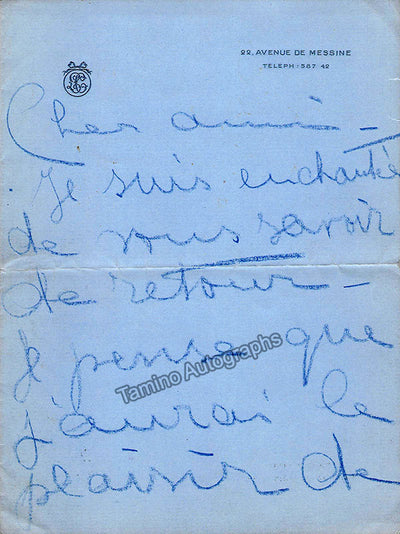 22, AVENUE DE MESSINE
TÉLÉPH : 567 42
Cher ami –
Je suis enchantée
de vous savoir
de retour –
Je pense que
Tamino Autographs
j'aurai le
plaisir de